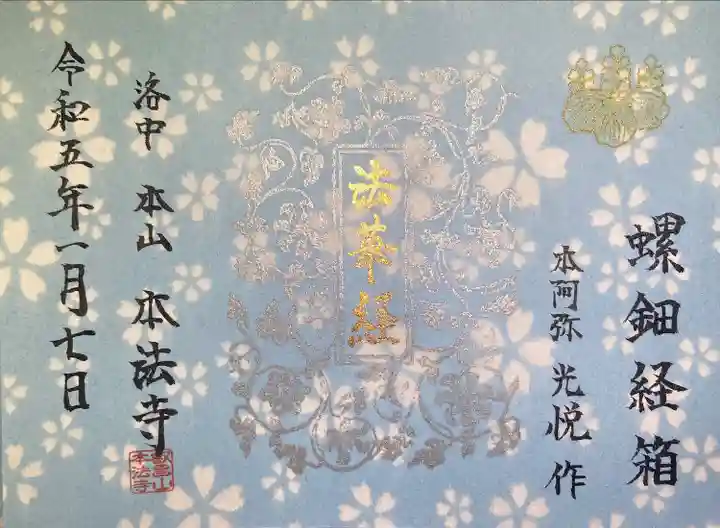 螺鈿経箱
本阿弥 光悦 作
法華経
洛中 本山 本法寺
叡昌山
本法寺
令和五年一月七日